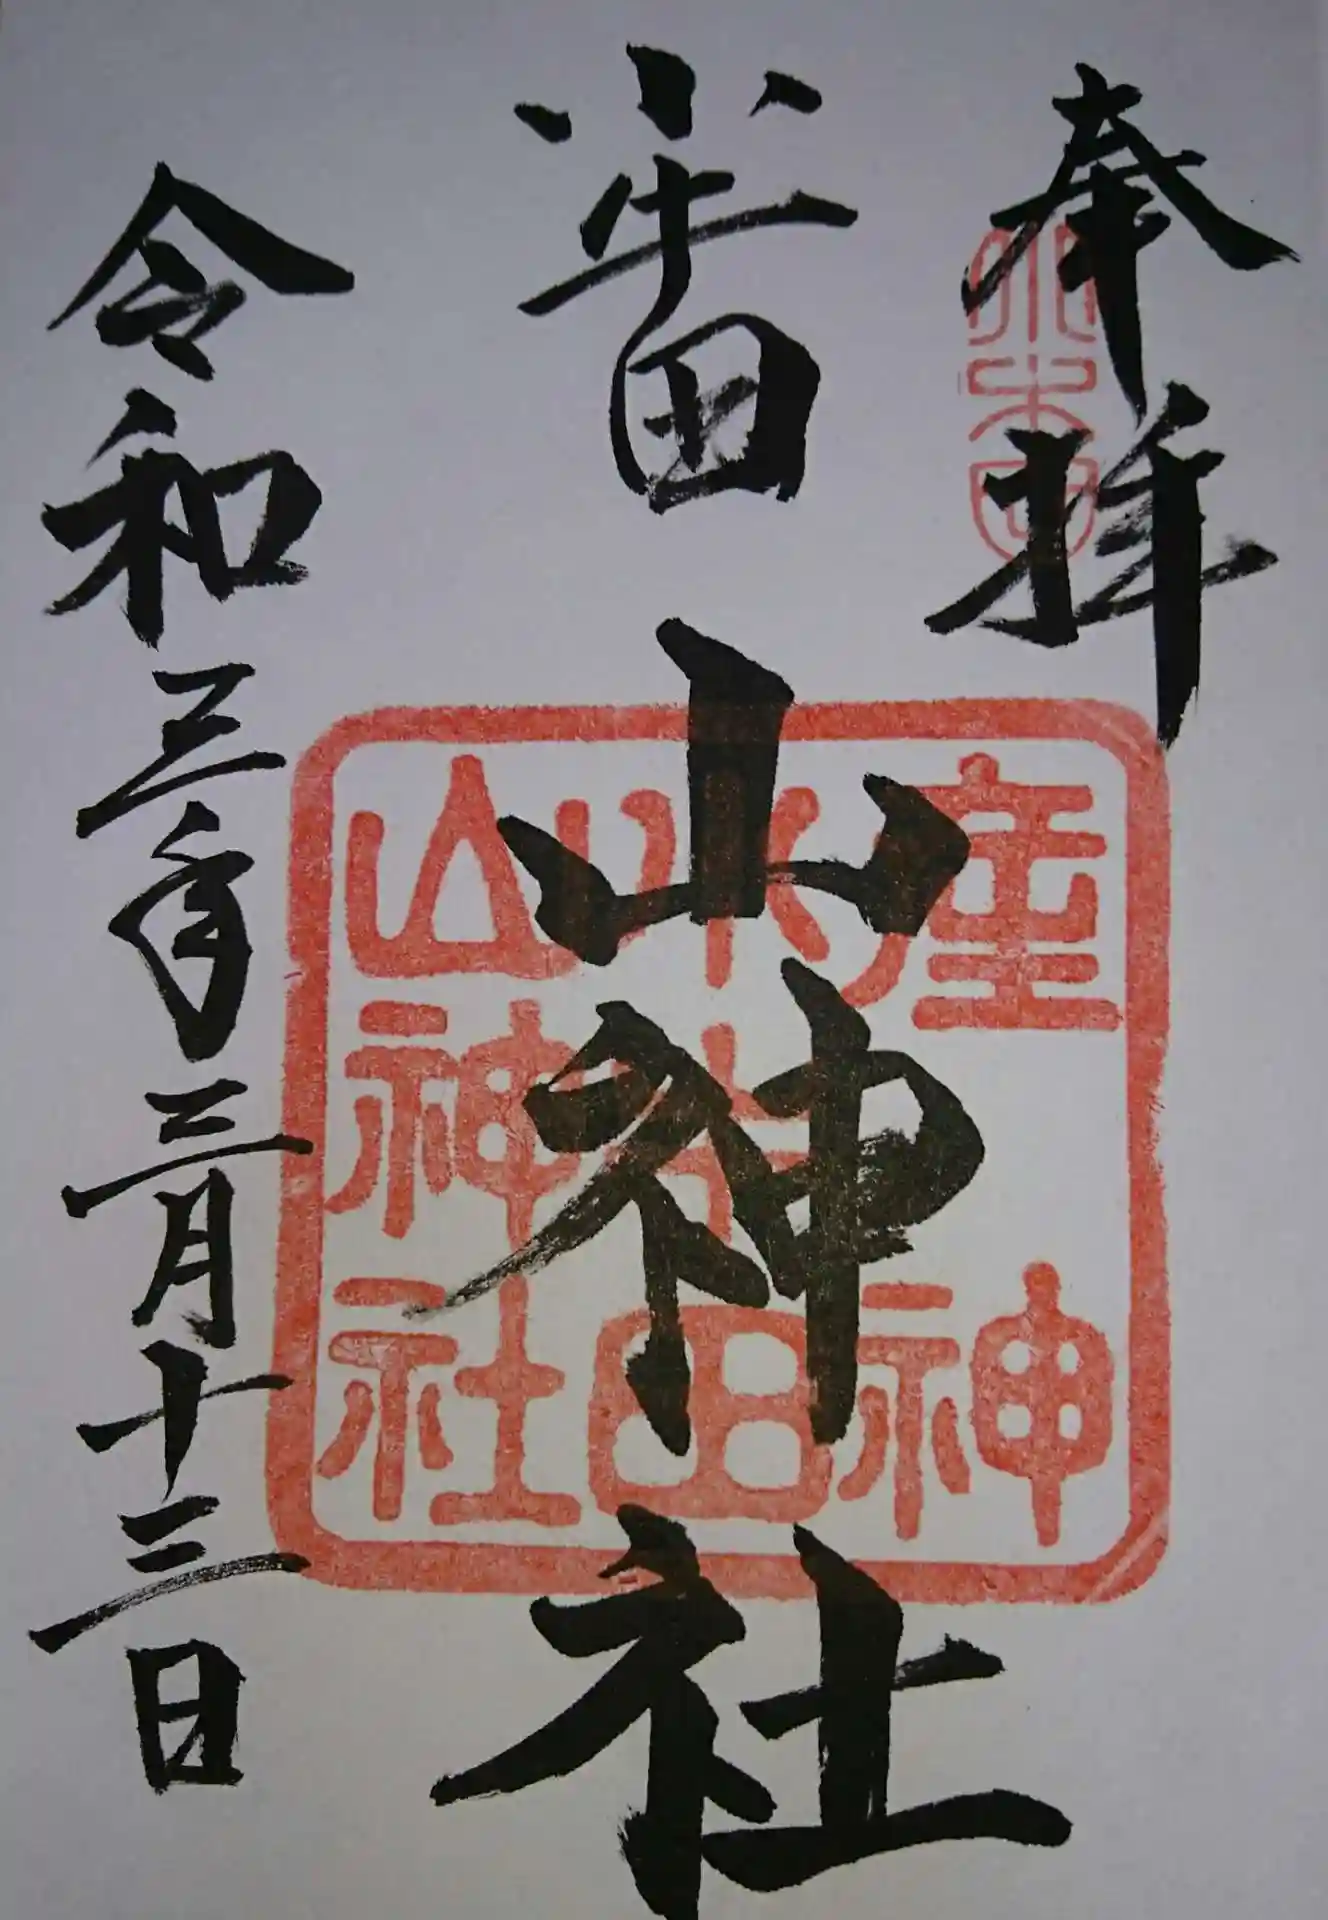 奉拝
小牛田
山神社
令和三年三月十三日
産神
小牛田
山神社